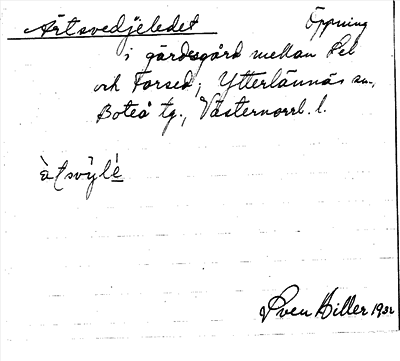 Ärtsvedjeledet Öppning
i gärdesgård mellan Pel
och Forsed, Ytterlännäs sn.,
Boteå tg., Västernorrl. l.
Sven Hiller 1932